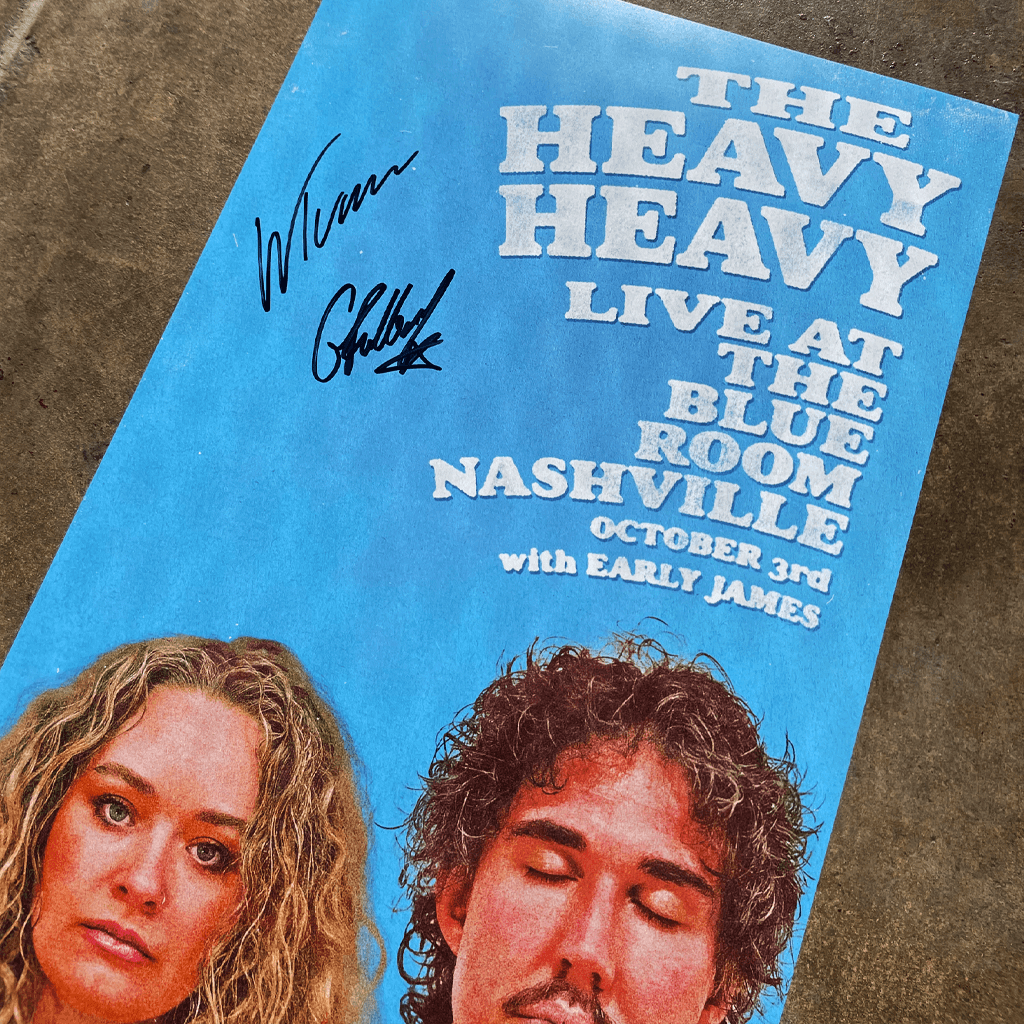 THE
HEAVY
HEAVY
LIVE AT
THE
BLUE
ROOM
NASHVILLE
OCTOBER 3rd
with EARLY JAMES